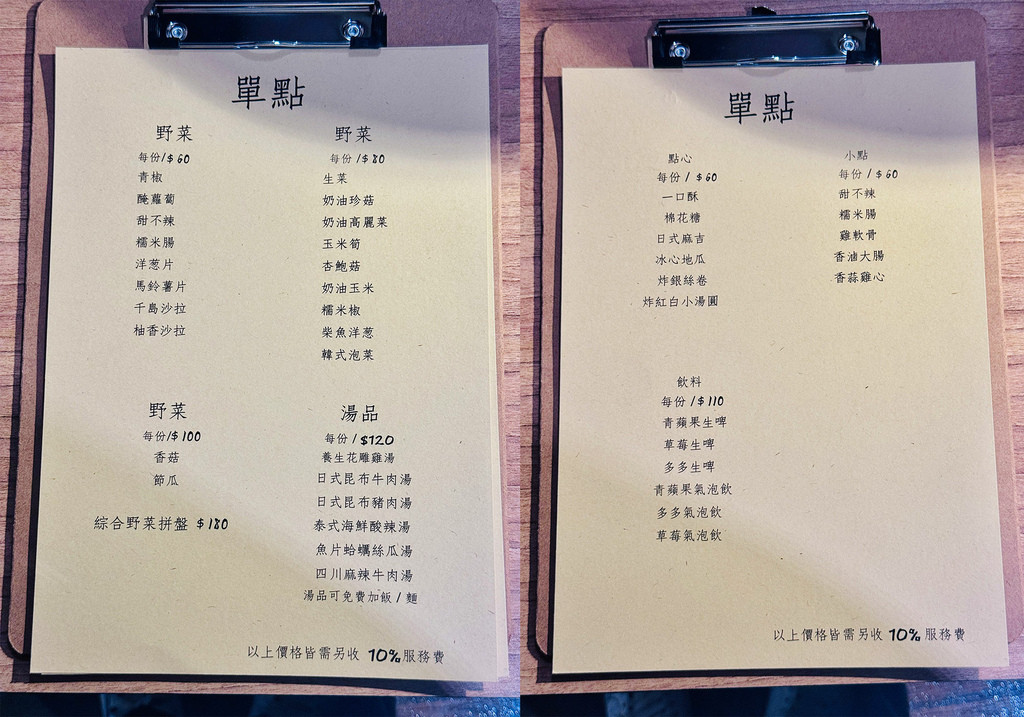 單點
野菜
每份/$60
青椒
醃蘿蔔
甜不辣
糯米腸
洋葱片
馬鈴薯片
千島沙拉
柚香沙拉
野菜
每份/$80
生菜
奶油珍菇
奶油高麗菜
玉米筍
杏鮑菇
奶油玉米
糯米椒
柴魚洋葱
韓式泡菜
野菜
每份/$100
香菇
節瓜
綜合野菜拼盤 $180
湯品
每份/$120
養生花雕雞湯
日式昆布牛肉湯
日式昆布豬肉湯
泰式海鮮酸辣湯
魚片蛤蠣絲瓜湯
四川麻辣牛肉湯
湯品可免費加飯/麵
以上價格皆需另收 10%服務費
單點
點心
每份/$60
一口酥
棉花糖
日式麻吉
冰心地瓜
炸銀絲卷
炸紅白小湯圓
小點
每份/$60
甜不辣
糯米腸
雞軟骨
香滷大腸
香蒜雞心
飲料
每份/$110
青蘋果生啤
草莓生啤
多多生啤
青蘋果氣泡飲
多多氣泡飲
草莓氣泡飲
以上價格皆需另收 10%服務費